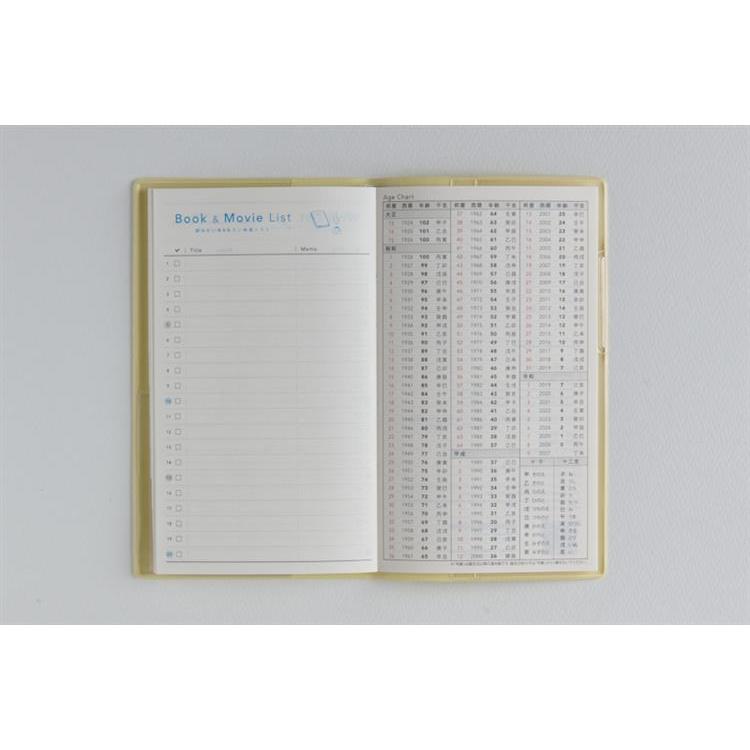 Book & Movie List
✓ Title Memo
1
2
3
4
5
6
7
8
9
10
11
12
13
14
15
16
17
18
19
20
Age Chart
和暦 西暦 年齢 干支
大正
13 1924 102 甲子
14 1925 101 乙丑
15 1926 100 丙寅
昭和
1 1926 100 丙寅
2 1927 99 丁卯
3 1928 98 戊辰
4 1929 97 己巳
5 1930 96 庚午
6 1931 95 辛未
7 1932 94 壬申
8 1933 93 癸酉
9 1934 92 甲戌
10 1935 91 乙亥
11 1936 90 丙子
12 1937 89 丁丑
13 1938 88 戊寅
14 1939 87 己卯
15 1940 86 庚辰
16 1941 85 辛巳
17 1942 84 壬午
18 1943 83 癸未
19 1944 82 甲申
20 1945 81 乙酉
21 1946 80 丙戌
22 1947 79 丁亥
23 1948 78 戊子
24 1949 77 己丑
25 1950 76 庚寅
26 1951 75 辛卯
27 1952 74 壬辰
28 1953 73 癸巳
29 1954 72 甲午
30 1955 71 乙未
31 1956 70 丙申
32 1957 69 丁酉
33 1958 68 戊戌
34 1959 67 己亥
35 1960 66 庚子
36 1961 65 辛丑
和暦 西暦 年齢 干支
37 1962 64 壬寅
38 1963 63 癸卯
39 1964 62 甲辰
40 1965 61 乙巳
41 1966 60 丙午
42 1967 59 丁未
43 1968 58 戊申
44 1969 57 己酉
45 1970 56 庚戌
46 1971 55 辛亥
47 1972 54 壬子
48 1973 53 癸丑
49 1974 52 甲寅
50 1975 51 乙卯
51 1976 50 丙辰
52 1977 49 丁巳
53 1978 48 戊午
54 1979 47 己未
55 1980 46 庚申
56 1981 45 辛酉
57 1982 44 壬戌
58 1983 43 癸亥
59 1984 42 甲子
60 1985 41 乙丑
61 1986 40 丙寅
62 1987 39 丁卯
63 1988 38 戊辰
64 1989 37 己巳
平成
1 1989 37 己巳
2 1990 36 庚午
3 1991 35 辛未
4 1992 34 壬申
5 1993 33 癸酉
6 1994 32 甲戌
7 1995 31 乙亥
8 1996 30 丙子
9 1997 29 丁丑
10 1998 28 戊寅
11 1999 27 己卯
12 2000 26 庚辰
和暦 西暦 年齢 干支
13 2001 25 辛巳
14 2002 24 壬午
15 2003 23 癸未
16 2004 22 甲申
17 2005 21 乙酉
18 2006 20 丙戌
19 2007 19 丁亥
20 2008 18 戊子
21 2009 17 己丑
22 2010 16 庚寅
23 2011 15 辛卯
24 2012 14 壬辰
25 2013 13 癸巳
26 2014 12 甲午
27 2015 11 乙未
28 2016 10 丙申
29 2017 9 丁酉
30 2018 8 戊戌
31 2019 7 己亥
令和
1 2019 7 己亥
2 2020 6 庚子
3 2021 5 辛丑
4 2022 4 壬寅
5 2023 3 癸卯
6 2024 2 甲辰
7 2025 1 乙巳
8 2026 0 丙午
9 2027 丁未
十干 十二支
甲 きのえ 子 ね
乙 きのと 丑 うし
丙 ひのえ 寅 とら
丁 ひのと 卯 う
戊 つちのえ 辰 たつ
己 つちのと 巳 み